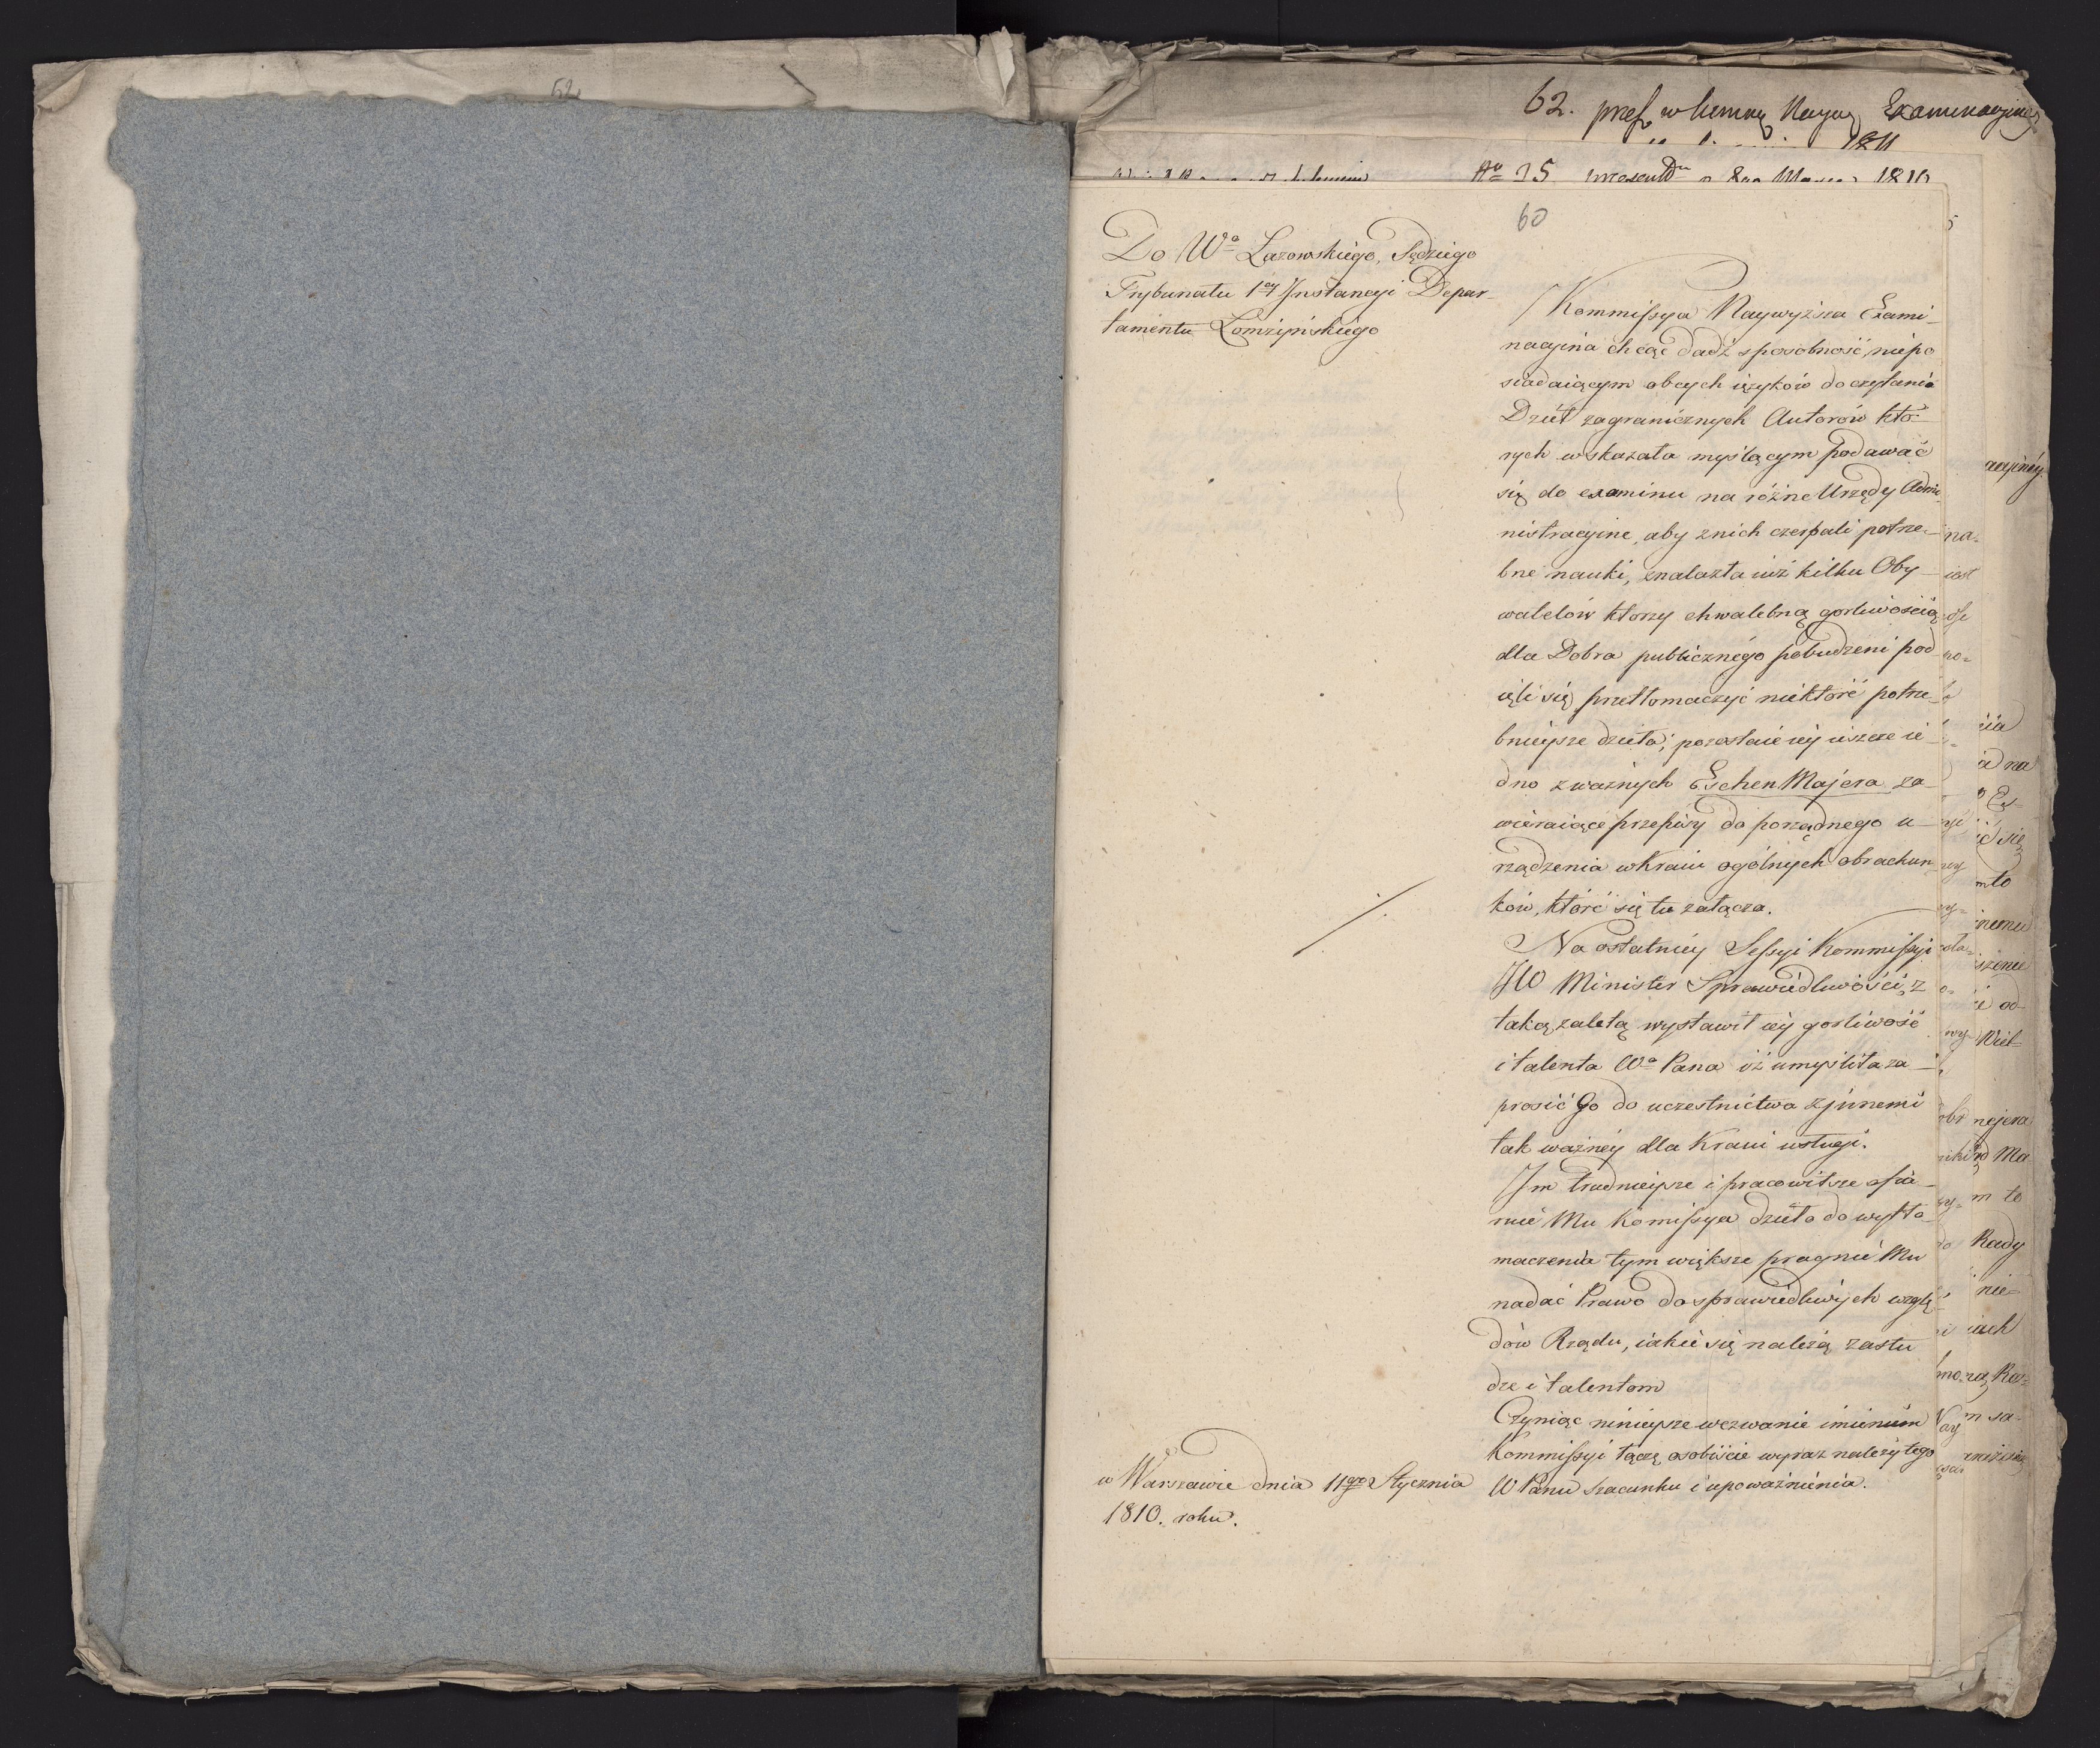 62
62. pref. w
Examinacyiney
1811
No 35
1810
60
Do Wo Lazowskiego, Sędziego
Trybunału 1ey Jnstancyi Depar-
tamentu Łomżyńskiego
Kommissya Naywyższa Exami-
nacyina chcąc dadź sposobność, niepo
siadaiącym obcych ięzyków do czytania
Dzieł zagranicznych Autorów któ-
rych wskazała myślącym podawać
się do examinu na różne Urzędy Admi-
nistracyine, aby znich czerpali potrze-
bne nauki, znalazła iuż kilku Oby-
watelów którzy chwalebną gorliwością
dla Dobra publicznégo pobudzeni pod-
ięli się przetłomaczyć niektóré potrze-
bnieysze dzieła; pozostaie iéy ieszcze ie-
dno zważnych EschenMajera za-
wieraiące przepisy do porządnego u-
rządzenia wKraiu ogólnych obrachun-
ków, któré się tu załącza.
Na ostatniéy Sessyi Kommissyi
JW Minister Sprawiedliwości, z
taką zaletą wystawił iéy gorliwość
i talenta Wo Pana iż umyśliła za-
prosić Go do uczestnictwa z jnnemi
tak ważnéy dla Kraiu usługi.
Jm trudnieysze i pracowitsze ofia-
ruié Mu Komissya dzieło do wytło-
maczenia tym większe pragnié Mu
nadać Prawo do sprawiedliwych wzglę
dów Rządu, iakié się należą zasłu
dze i talentom
Czyniąc ninieysze wezwanie imieniem
Kommissyi łączę osobiście wyraz należytego
W Panu szacunku i upoważniénia.
w Warszawie dnia 11go Stycznia
1810. roku.